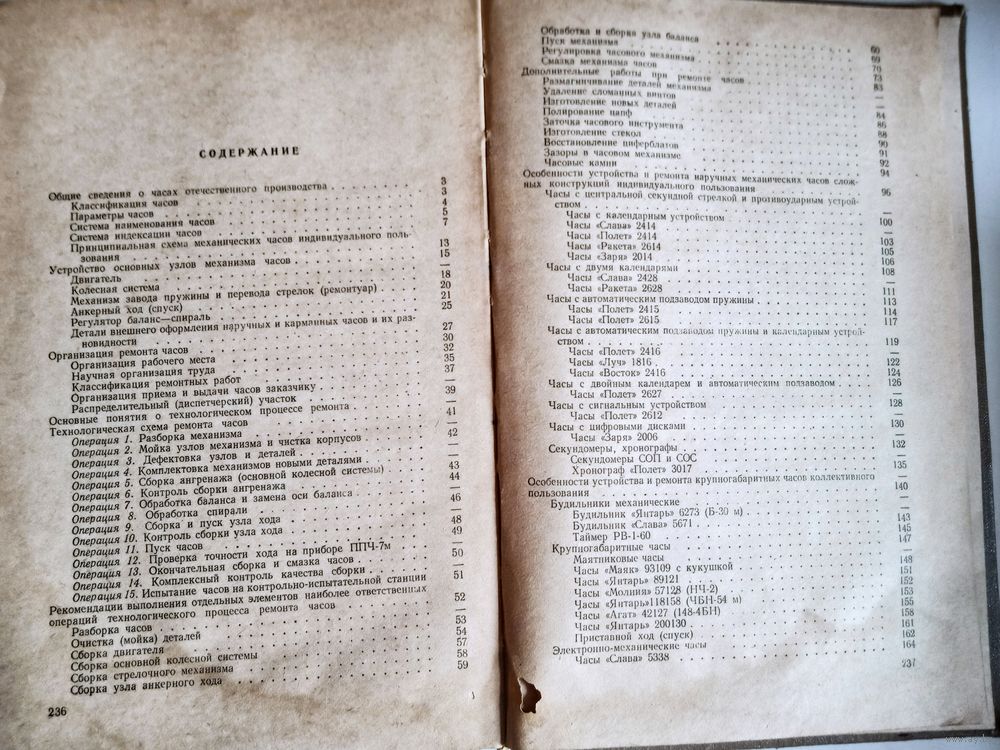 СОДЕРЖАНИЕ
Общие сведения о часах отечественного производства 3
Классификация часов 3
Параметры часов 4
Система наименования часов 5
Система индексации часов 7
Принципиальная схема механических часов индивидуального поль-
зования 13
Устройство основных узлов механизма часов 15
Двигатель —
Колесная система 18
Механизм завода пружины и перевода стрелок (ремонтуар) 20
Анкерный ход (спуск) 21
Регулятор баланс—спираль 25
Детали внешнего оформления наручных и карманных часов и их раз-
новидности 27
Организация ремонта часов 30
Организация рабочего места 32
Научная организация труда 35
Классификация ремонтных работ 37
Организация приема и выдачи часов заказчику —
Распределительный (диспетчерский) участок 39
Основные понятия о технологическом процессе ремонта —
Технологическая схема ремонта часов 41
Операция 1. Разборка механизма —
Операция 2. Мойка узлов механизма и чистка корпусов 42
Операция 3. Дефектовка узлов и деталей —
Операция 4. Комплектовка механизмов новыми деталями —
Операция 5. Сборка ангренажа (основной колесной системы) 43
Операция 6. Контроль сборки ангренажа 44
Операция 7. Обработка баланса и замена оси баланса —
Операция 8. Обработка спирали 46
Операция 9. Сборка и пуск узла хода —
Операция 10. Контроль сборки узла хода 48
Операция 11. Пуск часов 49
Операция 12. Проверка точности хода на приборе ППЧ-7м —
Операция 13. Окончательная сборка и смазка часов 50
Операция 14. Комплексный контроль качества сборки —
Операция 15. Испытание часов на контрольно-испытательной станции 51
Рекомендации выполнения отдельных элементов наиболее ответственных
операций технологического процесса ремонта часов 52
Разборка часов —
Очистка (мойка) деталей 53
Сборка двигателя 54
Сборка основной колесной системы 57
Сборка стрелочного механизма 58
Сборка узла анкерного хода 59
236
Обработка и сборка узла баланса 60
Пуск механизма 69
Регулировка часового механизма 70
Смазка механизма часов 73
Дополнительные работы при ремонте часов 83
Размагничивание деталей механизма —
Удаление сломанных винтов —
Изготовление новых деталей 84
Полирование цапф 86
Заточка часового инструмента 88
Изготовление стекол 90
Восстановление циферблатов 91
Зазоры в часовом механизме 92
Часовые камни 94
Особенности устройства и ремонта наручных механических часов слож-
ных конструкций индивидуального пользования 96
Часы с центральной секундной стрелкой и противоударным устрой-
ством —
Часы с календарным устройством 100
Часы «Слава» 2414 —
Часы «Полет» 2414 103
Часы «Ракета» 2614 105
Часы «Заря» 2014 106
Часы с двумя календарями 108
Часы «Слава» 2428 —
Часы «Ракета» 2628 111
Часы с автоматическим подзаводом пружины 113
Часы «Полет» 2415 114
Часы «Полет» 2615 117
Часы с автоматическим подзаводом пружины и календарным устрой-
ством 119
Часы «Полет» 2416 —
Часы «Луч» 1816 122
Часы «Восток» 2416 124
Часы с двойным календарем и автоматическим подзаводом 126
Часы «Полет» 2627 —
Часы с сигнальным устройством 128
Часы «Полет» 2612 —
Часы с цифровыми дисками 130
Часы «Заря» 2006 —
Секундомеры, хронографы 132
Секундомеры СОП и СОС —
Хронограф «Полет» 3017 135
Особенности устройства и ремонта крупногабаритных часов коллективного
пользования 140
Будильники механические —
Будильник «Янтарь» 6273 (Б-30 м) —
Будильник «Слава» 5671 143
Таймер РВ-1-60 145
Крупногабаритные часы 147
Маятниковые часы —
Часы «Маяк» 93109 с кукушкой 148
Часы «Янтарь» 89121 151
Часы «Молния» 57128 (НЧ-2) 152
Часы «Янтарь»118158 (ЧБН-54 м) 153
Часы «Агат» 42127 (148-4БН) 155
Часы «Янтарь» 200130 158
Приставной ход (спуск) 161
Электронно-механические часы 162
Часы «Слава» 5338 164
237